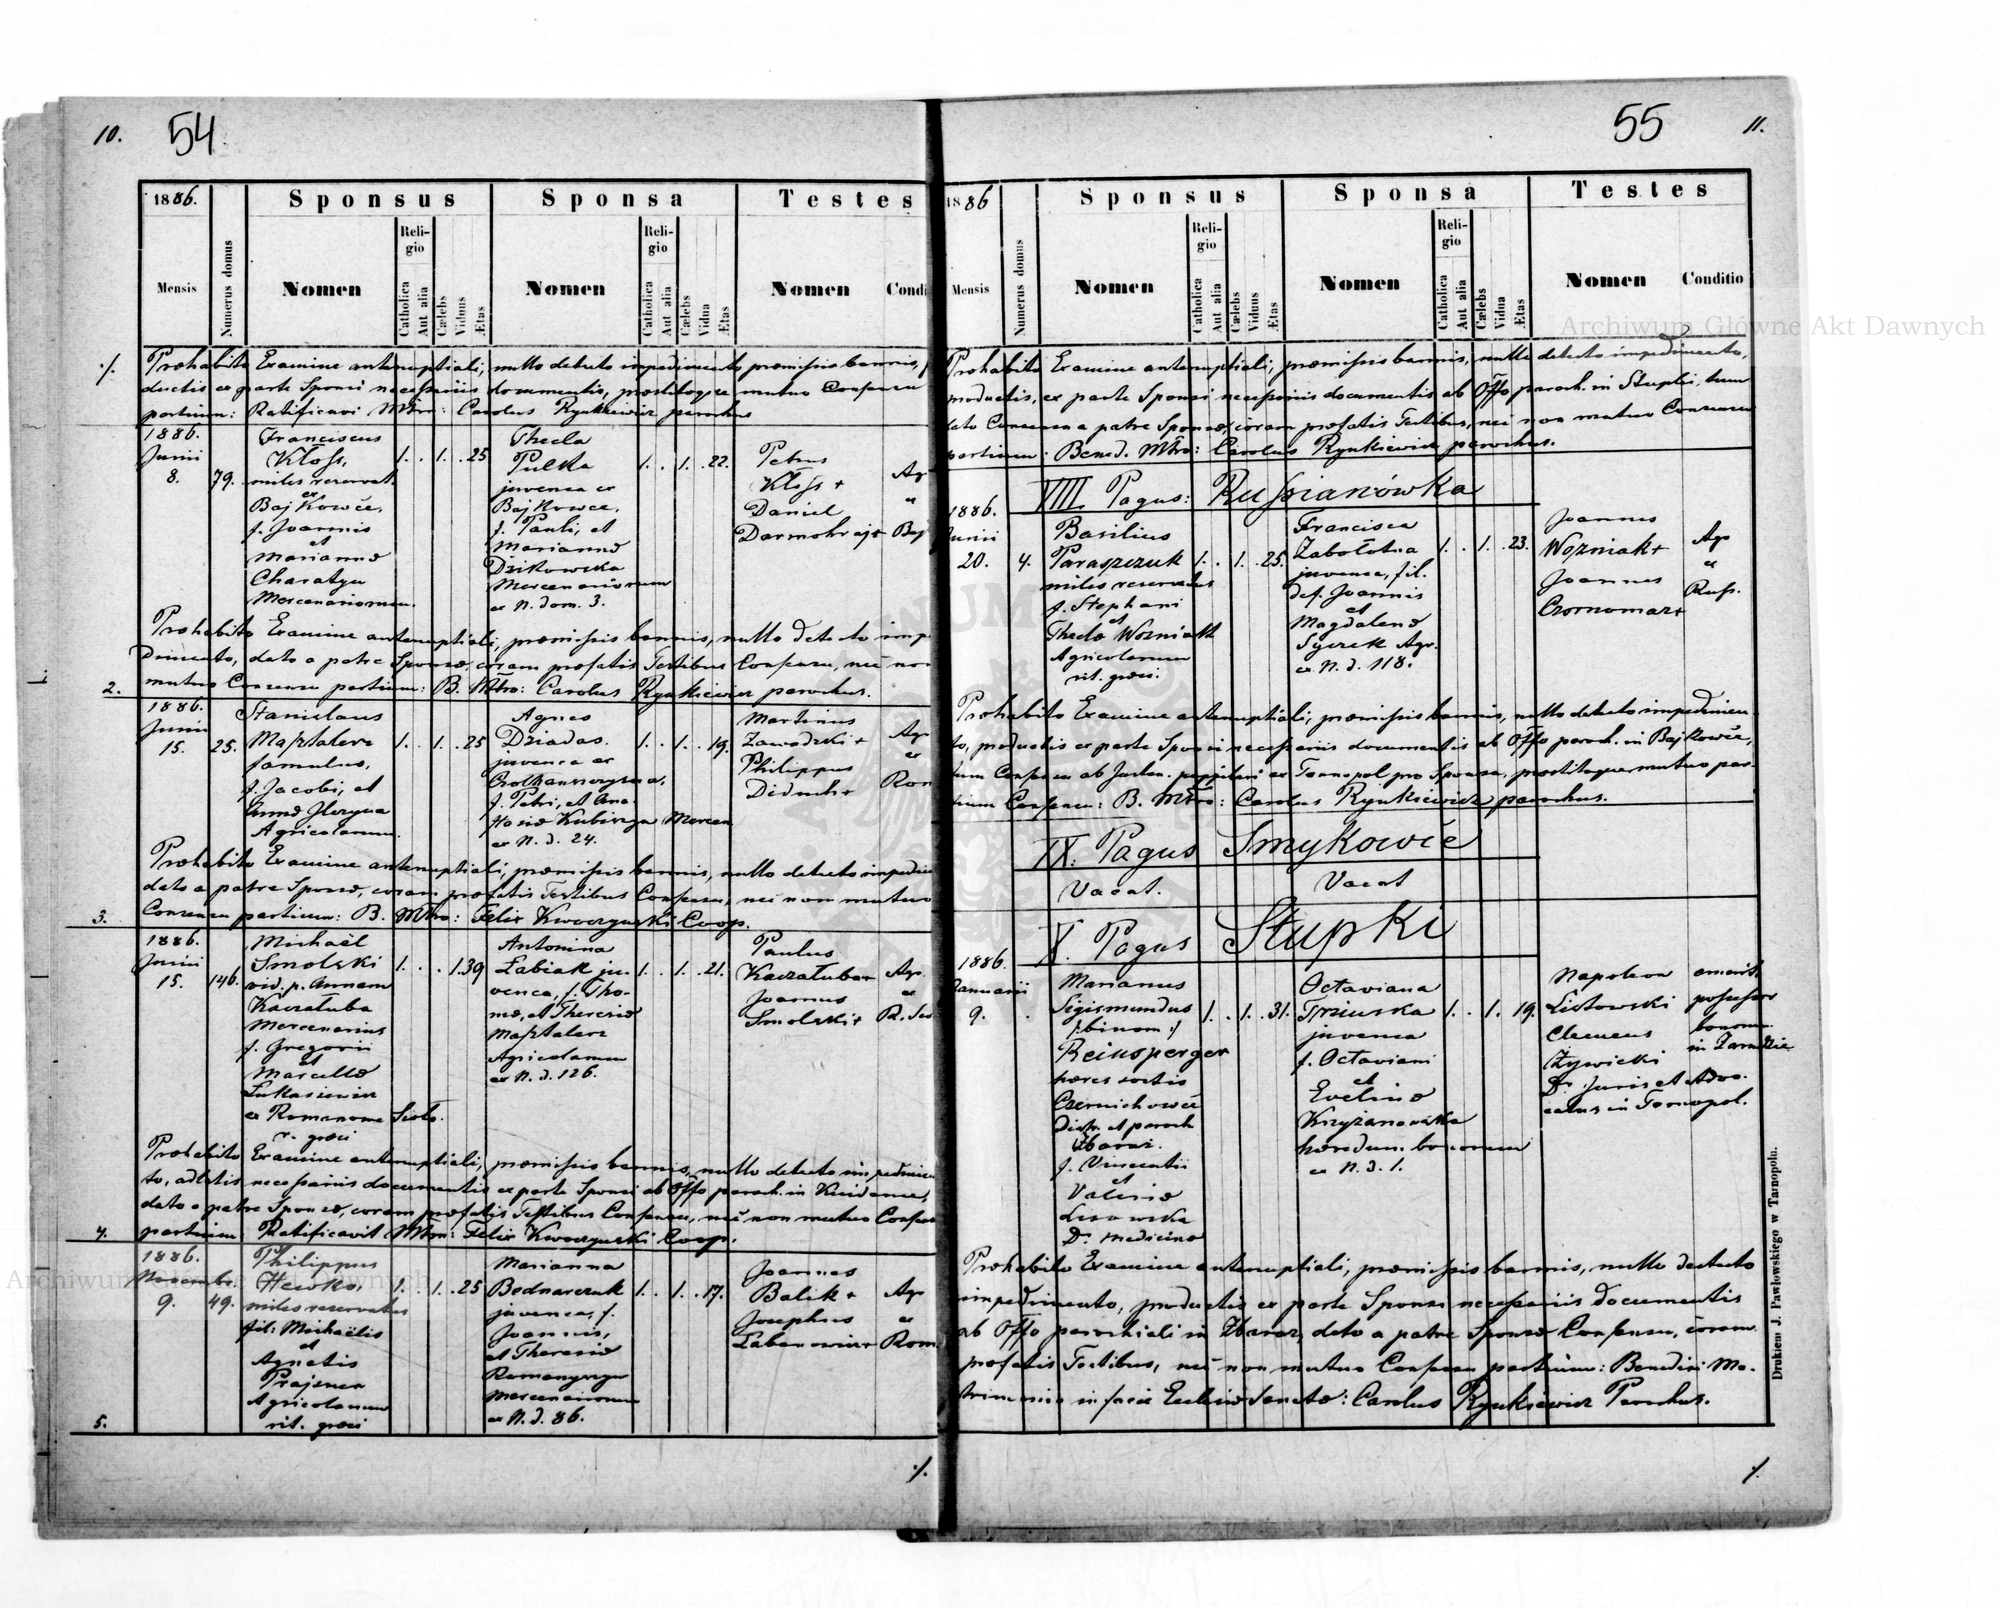 10. 54
1886.
Sponsus
Sponsa
Testes
Mensis
Numerus domus
Nomen
Religio
Catholica
Aut alia
Cælebs
Viduus
Ætas
Nomen
Religio
Catholica
Aut alia
Cælebs
Vidua
Ætas
Nomen
Condi
./.
Præhabito Examine antenuptiali, nullo detecto impedimento, præmissis bannis,
ductis ex parte Sponsi necessariis documentis, præstitoque mutuo Consensu
partium: Ratificavi Mtrm: Carolus Rynkiewicz parochus
1886.
Junii
8.
79.
Franciscus
Kloss,
miles reservat.
ex
Bajkowce,
f. Joannis
et
Mariannæ
Charatyn
Mercenariorum.
1. . 1. . 25
Thecla
Pulka
juvenca ex
Bajkowce,
f. Pauli, et
Mariannæ
Dzikowska
Mercenariorum
ex N. dom. 3.
1. . 1. . 22.
Petrus
Kloss +
Daniel
Darmohraj +
Ag
ex
Baj
Præhabito Examine antenuptiali, præmissis bannis, nullo detecto imp
dimento, dato a patre Sponsæ, coram præfatis Testibus Consensu, nec non
mutuo Consensu partium: B. Mtro: Carolus Rynkiewicz parochus.
2.
1886.
Junii
15.
25.
Stanislaus
Masztalerz
famulus,
f. Jacobi, et
Annæ
Agricolarum.
1. . 1. . 25
Agnes
Dziadas.
juvenca ex
f. Petri, et Ana-
stasiæ Kubiszyn Mercen
ex N. d. 24.
1. . 1. . 19.
Martinus
Zawadzki +
Philippus
Diduch +
Ag
ex
Rom
Præhabito Examine antenuptiali, præmissis bannis, nullo detecto impedim
dato a patre Sponsæ, coram præfatis Testibus Consensu, nec non mutuo
Consensu partium: B. Mtro: Felix Kwoczyński Coop.
3.
1886.
Junii
15.
146.
Michaël
Smolski
vid. p. Annam
Kaczałuba
Mercenarius
f. Gregorii
et
Marcellæ
Łukasiewicz
ex Romanowe Sioło.
r. græci
1. . . 1. 39
Antonina
Łabiak ju-
venca, f. Tho-
mæ, et Theresiæ
Masztalerz
Agricolarum
ex N. d. 126.
1. . 1. . 21.
Paulus
Kaczałuba +
Joannes
Smolski +
Ag.
ex
Præhabito Examine antenuptiali, præmissis bannis, nullo detecto impedimen
to, adlatis necessariis documentis ex parte Sponsi ab Offo paroch. in
dato a patre Sponsæ, coram præfatis Testibus Consensu, nec non mutuo Consensu
partium: Ratificavit Mtrm: Felix Kwoczyński Coop.
4.
1886.
Novembr.
9.
49.
Philippus
Hewko,
miles reservatus
fil: Michaëlis
et
Agnetis
Prajsner
Agricolarum
rit. græci
1. . 1. . 25
Marianna
Bednarczuk
juvenca, f.
Joannis,
et Theresiæ
Romanyszyn
Mercenariorum
ex N. d. 86.
1. . 1. . 17.
Joannes
Balik +
Josephus
Łabanowicz +
Ag
ex
Rom.
5.
./.
55 11.
1886
Sponsus
Sponsa
Testes
Mensis
Numerus domus
Nomen
Religio
Catholica
Aut alia
Cælebs
Viduus
Ætas
Nomen
Religio
Catholica
Aut alia
Cælebs
Vidua
Ætas
Nomen
Conditio
Præhabito Examine antenuptiali, præmissis bannis, nullo detecto impedimento,
productis, ex parte Sponsi necessariis documentis ab Offo paroch. in Stupki, tum
dato Consensu a patre Sponsæ, coram præfatis Testibus, nec non mutuo Consensu
partium: Bened. Mtro: Carolus Rynkiewicz parochus.
VIII. Pagus: Russianówka
1886.
Junii
20.
4.
Basilius
Paraszczuk
miles reservatus
f. Stephani
et
Theclæ Wozniak
Agricolarum
rit. græci.
1. . 1. . 25.
Francisca
Zabołotna
juvenca, fil.
def. Joannis
et
Magdalenæ
Syczek Agr.
ex N. d. 118.
1. . 1. . 23.
Joannes
Wozniak +
Joannes
Czornomaz +
Agr
ex
Russ.
Præhabito Examine antenuptiali, præmissis bannis, nullo detecto impedimen-
to, productis ex parte Sponsi necessariis documentis ab Offo paroch. in Bajkowce,
tum Consensu ab Judm. puppilari ex Tarnopol pro Sponsa, præstitoque mutuo par-
tium Consensu: B. Mtro: Carolus Rynkiewicz parochus.
IX. Pagus Smykowce
Vacat. Vacat
X. Pagus Stupki
1886.
Januarii
9.
Marianus
Sigismundus
/:binom:/
Reinsperger
hæres sortis
Czernichowce
Distr. et paroch
Zbaraż.
f. Vincentii
et
Valeriæ
Lisowska
Dr. medicinæ
1. . 1. . 31.
Octaviana
juvenca
f. Octaviani
et
Evelinæ
Krzyżanowska
hæredum bonorum
ex N. d. 1.
1. . 1. 19.
Napoleon
Listowski
Clemens
Żywicki
Dr. juris et Advo-
catus in Tarnopol.
emerit.
possessor
bonorum
in
Præhabito Examine antenuptiali, præmissis bannis, nullo detecto
impedimento, productis ex parte Sponsi necessariis documentis
ab Offo parochiali in Zbaraż, dato a patre Sponsæ Consensu, coram
præfatis Testibus, nec non mutuo Consensu partium: Benedixi Ma-
trimonio in facie Ecclesiæ Sanctæ: Carolus Rynkiewicz Parochus.
./.
Drukiem J. Pawłowskiego w Tarnopolu.
Archiwum Główne Akt Dawnych
Archiwum Główne Akt Dawnych